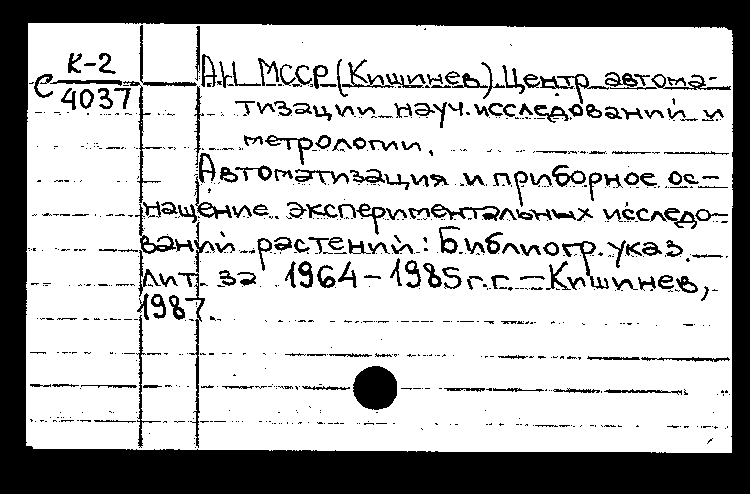 К-2
С 4037
АН МССР (Кишинев). Центр автома-
тизации науч. исследований и
метрологии.
Автоматизация и приборное ос-
нащение экспериментальных исследо-
ваний растений: Библиогр. указ.
лит. за 1964-1985 г.г. - Кишинев,
1987.